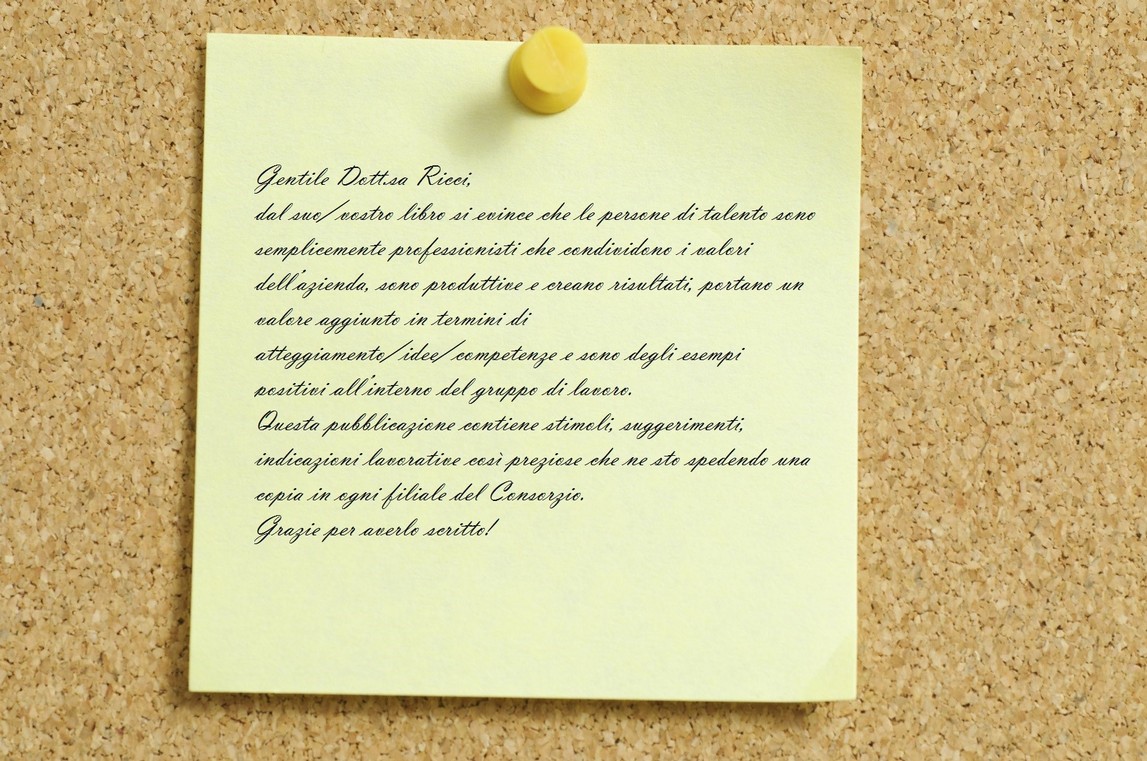 Gentile Dott.sa Ricci,
dal suo/vostro libro si evince che le persone di talento sono
semplicemente professionisti che condividono i valori
dell'azienda, sono produttive e creano risultati, portano un
valore aggiunto in termini di
atteggiamento/idee/competenze e sono degli esempi
positivi all'interno del gruppo di lavoro.
Questa pubblicazione contiene stimoli, suggerimenti,
indicazioni lavorative così preziose che ne sto spedendo una
copia in ogni filiale del Consorzio.
Grazie per averlo scritto!